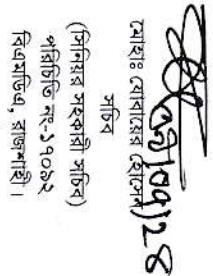 মোহাঃ যোবায়ের হোসেন
সচিব
(সিনিয়র সহকারি সচিব)
পরিচিতি নং-১৭০৯২
বিএমডিএ, রাজশাহী।